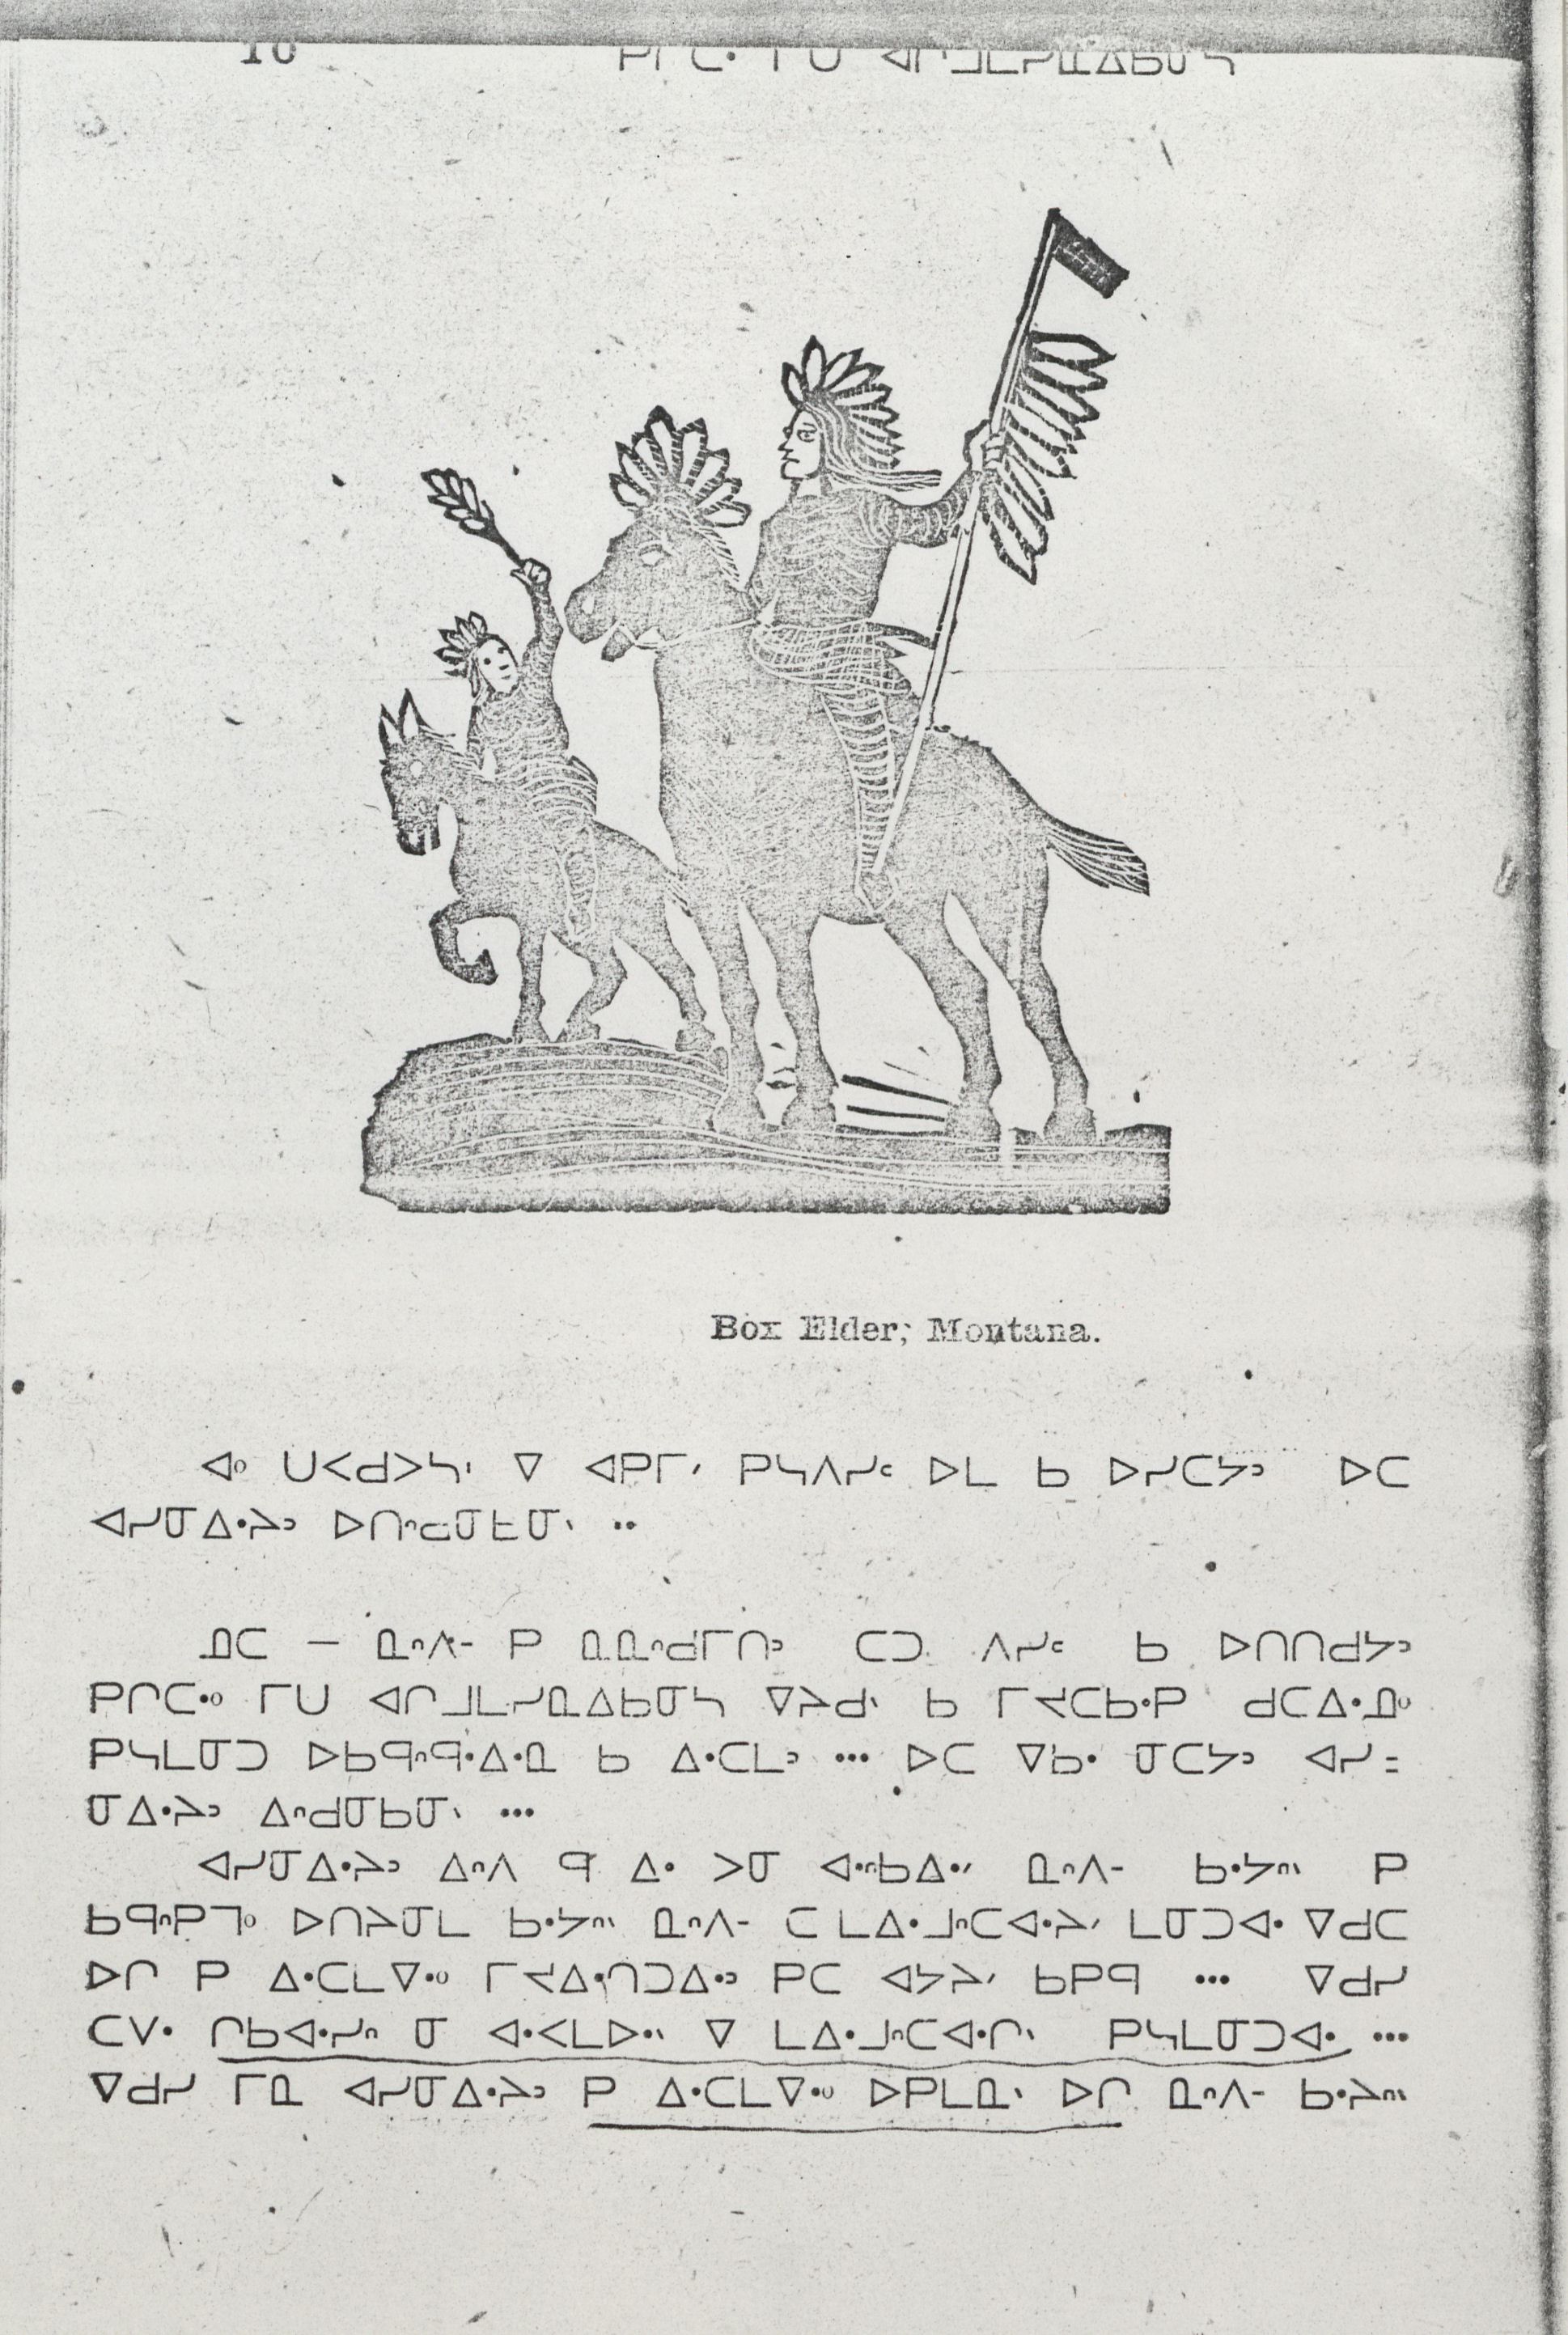 10 ᑭᒋᑕᐧ ᒥᑌ ᐊᒋᒧᒪᓯᓇᐃᑲᓂᓴ
Box Elder; Montana.
ᐊᐤ ᑌᐸᑯᐳᓴᑊ ᐁ ᐊᑭᒥᐟ ᑭᓴᐱᓯᒼ ᐅᒪ ᑲ ᐅᓯᑕᔭᐣ ᐅᑕ
ᐊᓯᓂᐃᐧᔨᐣ ᐅᑎᐢᑯᓂᑲᓂᕽ ᐧᐧ
ᓄᑕ — ᓇᐢᐱᐨ ᑭ ᓇᓇᐢᑯᒥᑎᐣ ᑕᑐ ᐱᓯᒼ ᑲ ᐅᑎᑎᑯᔭᐣ
ᑭᒋᑕᐧᐤ ᒥᑌ ᐊᒋᒧᒪᓯᓇᐃᑲᓂᓴ ᐁᔨᑯᐠ ᑲ ᒥᔪᑕᑲᐧᑭ ᑯᑕᐃᐧᓄᐤ
ᑭᓴᒪᓂᑐ ᐅᑲᑫᐢᑫᐧᐃᐧᓇ ᑲ ᐃᐧᑕᒪᐣ ᐧᐧᐧ ᐅᑕ ᐁᑲᐧ ᓂᑕᔭᐣ ᐊᓯ=
ᓂᐃᐧᔨᐣ ᐃᐢᑯᓂᑲᓂᐠ ᐧᐧᐧ
ᐊᓯᓂᐃᐧᔨᐣ ᐃᐢᐱ ᑫ ᐃᐧ ᐳᓂ ᐊᐧᐢᑲᐃᐧᐟ ᓇᐢᐱᐨ ᑲᐧᔭᐢᐠ ᑭ
ᑲᑫᐢᑭᒣᐤ ᐅᑎᔨᓂᒪ ᑲᐧᔭᐢᐠ ᓇᐢᐱᐨ ᑕ ᒪᐃᐧᒧᐢᑕᐊᐧᔨᐟ ᒪᓂᑐᐊᐧ ᐁᑯᑕ
ᐅᒋ ᑭ ᐃᐧᑕᒪᐁᐧᐤ ᒥᔪᐃᐧᒋᑐᐃᐧᐣ ᑭᑕ ᐊᔭᔨᐟ ᑲᑭᑫ ᐧᐧᐧ ᐁᑯᓯ
ᑕᐯᐧ ᒋᑲᐊᐧᓯᐢ ᓂ ᐊᐧᐸᒪᐅᐧᐠ ᐁ ᒪᐃᐧᒧᐢᑕᐊᐧᒋᐠ ᑭᓴᒪᓂᑐᐊᐧ ᐧᐧᐧ
ᐁᑯᓯ ᒥᓇ ᐊᓯᓂᐃᐧᔨᐣ ᑭ ᐃᐧᑕᒪᐁᐧᐤ ᐅᑭᒪᓇᐠ ᐅᒋ ᓇᐢᐱᐨ ᑲᐧᔨᐢᐠ